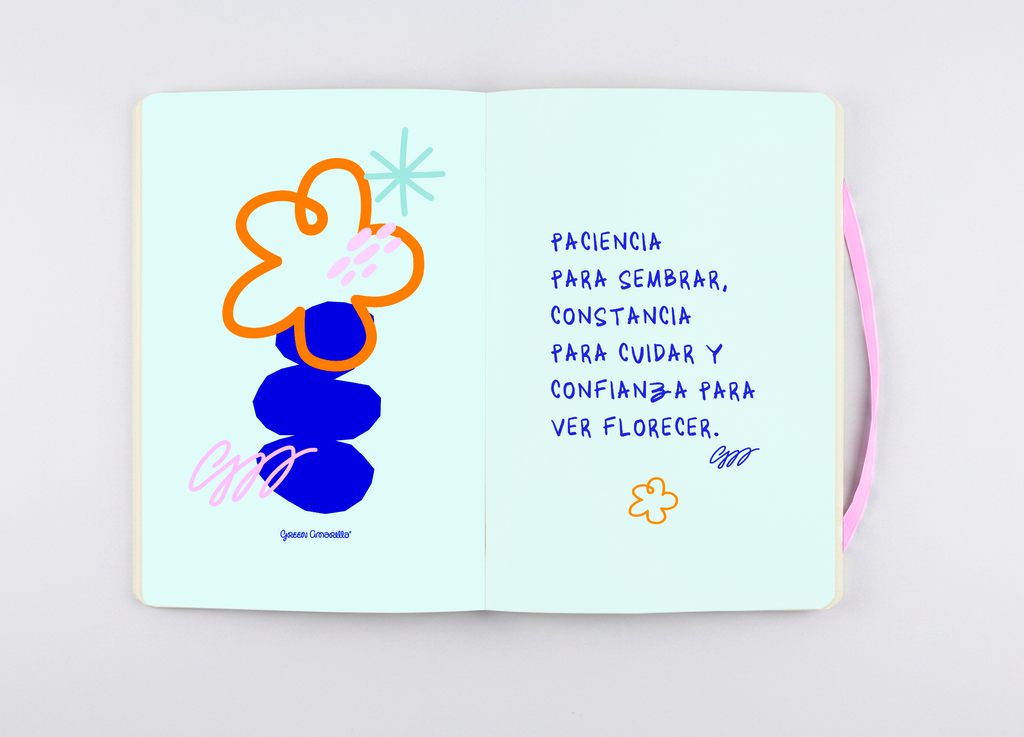 Green Amarella
PACIENCIA
PARA SEMBRAR,
CONSTANCIA
PARA CUIDAR Y
CONFIANZA PARA
VER FLORECER.